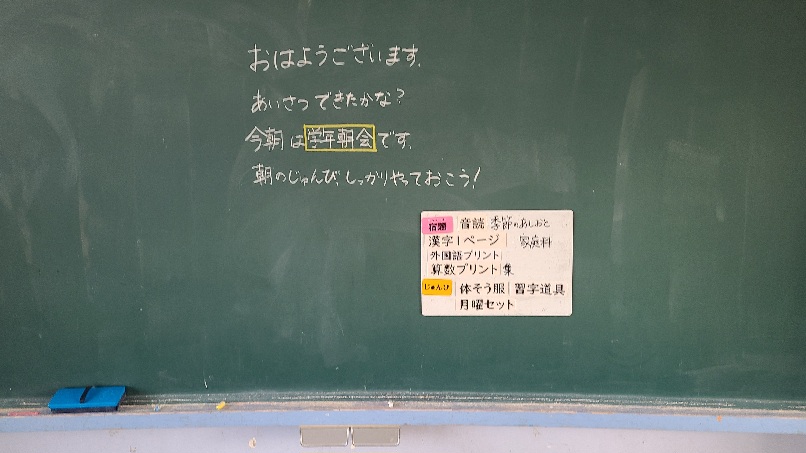 おはようございます。
あいさつできたかな?
今朝は学年朝会です。
朝のじゅんび、しっかりやっておこう!
宿題 音読 季節のあしおと
漢字1ページ 家庭科
外国語プリント
算数プリント集
じゅんび 体そう服 習字道具
月曜セット